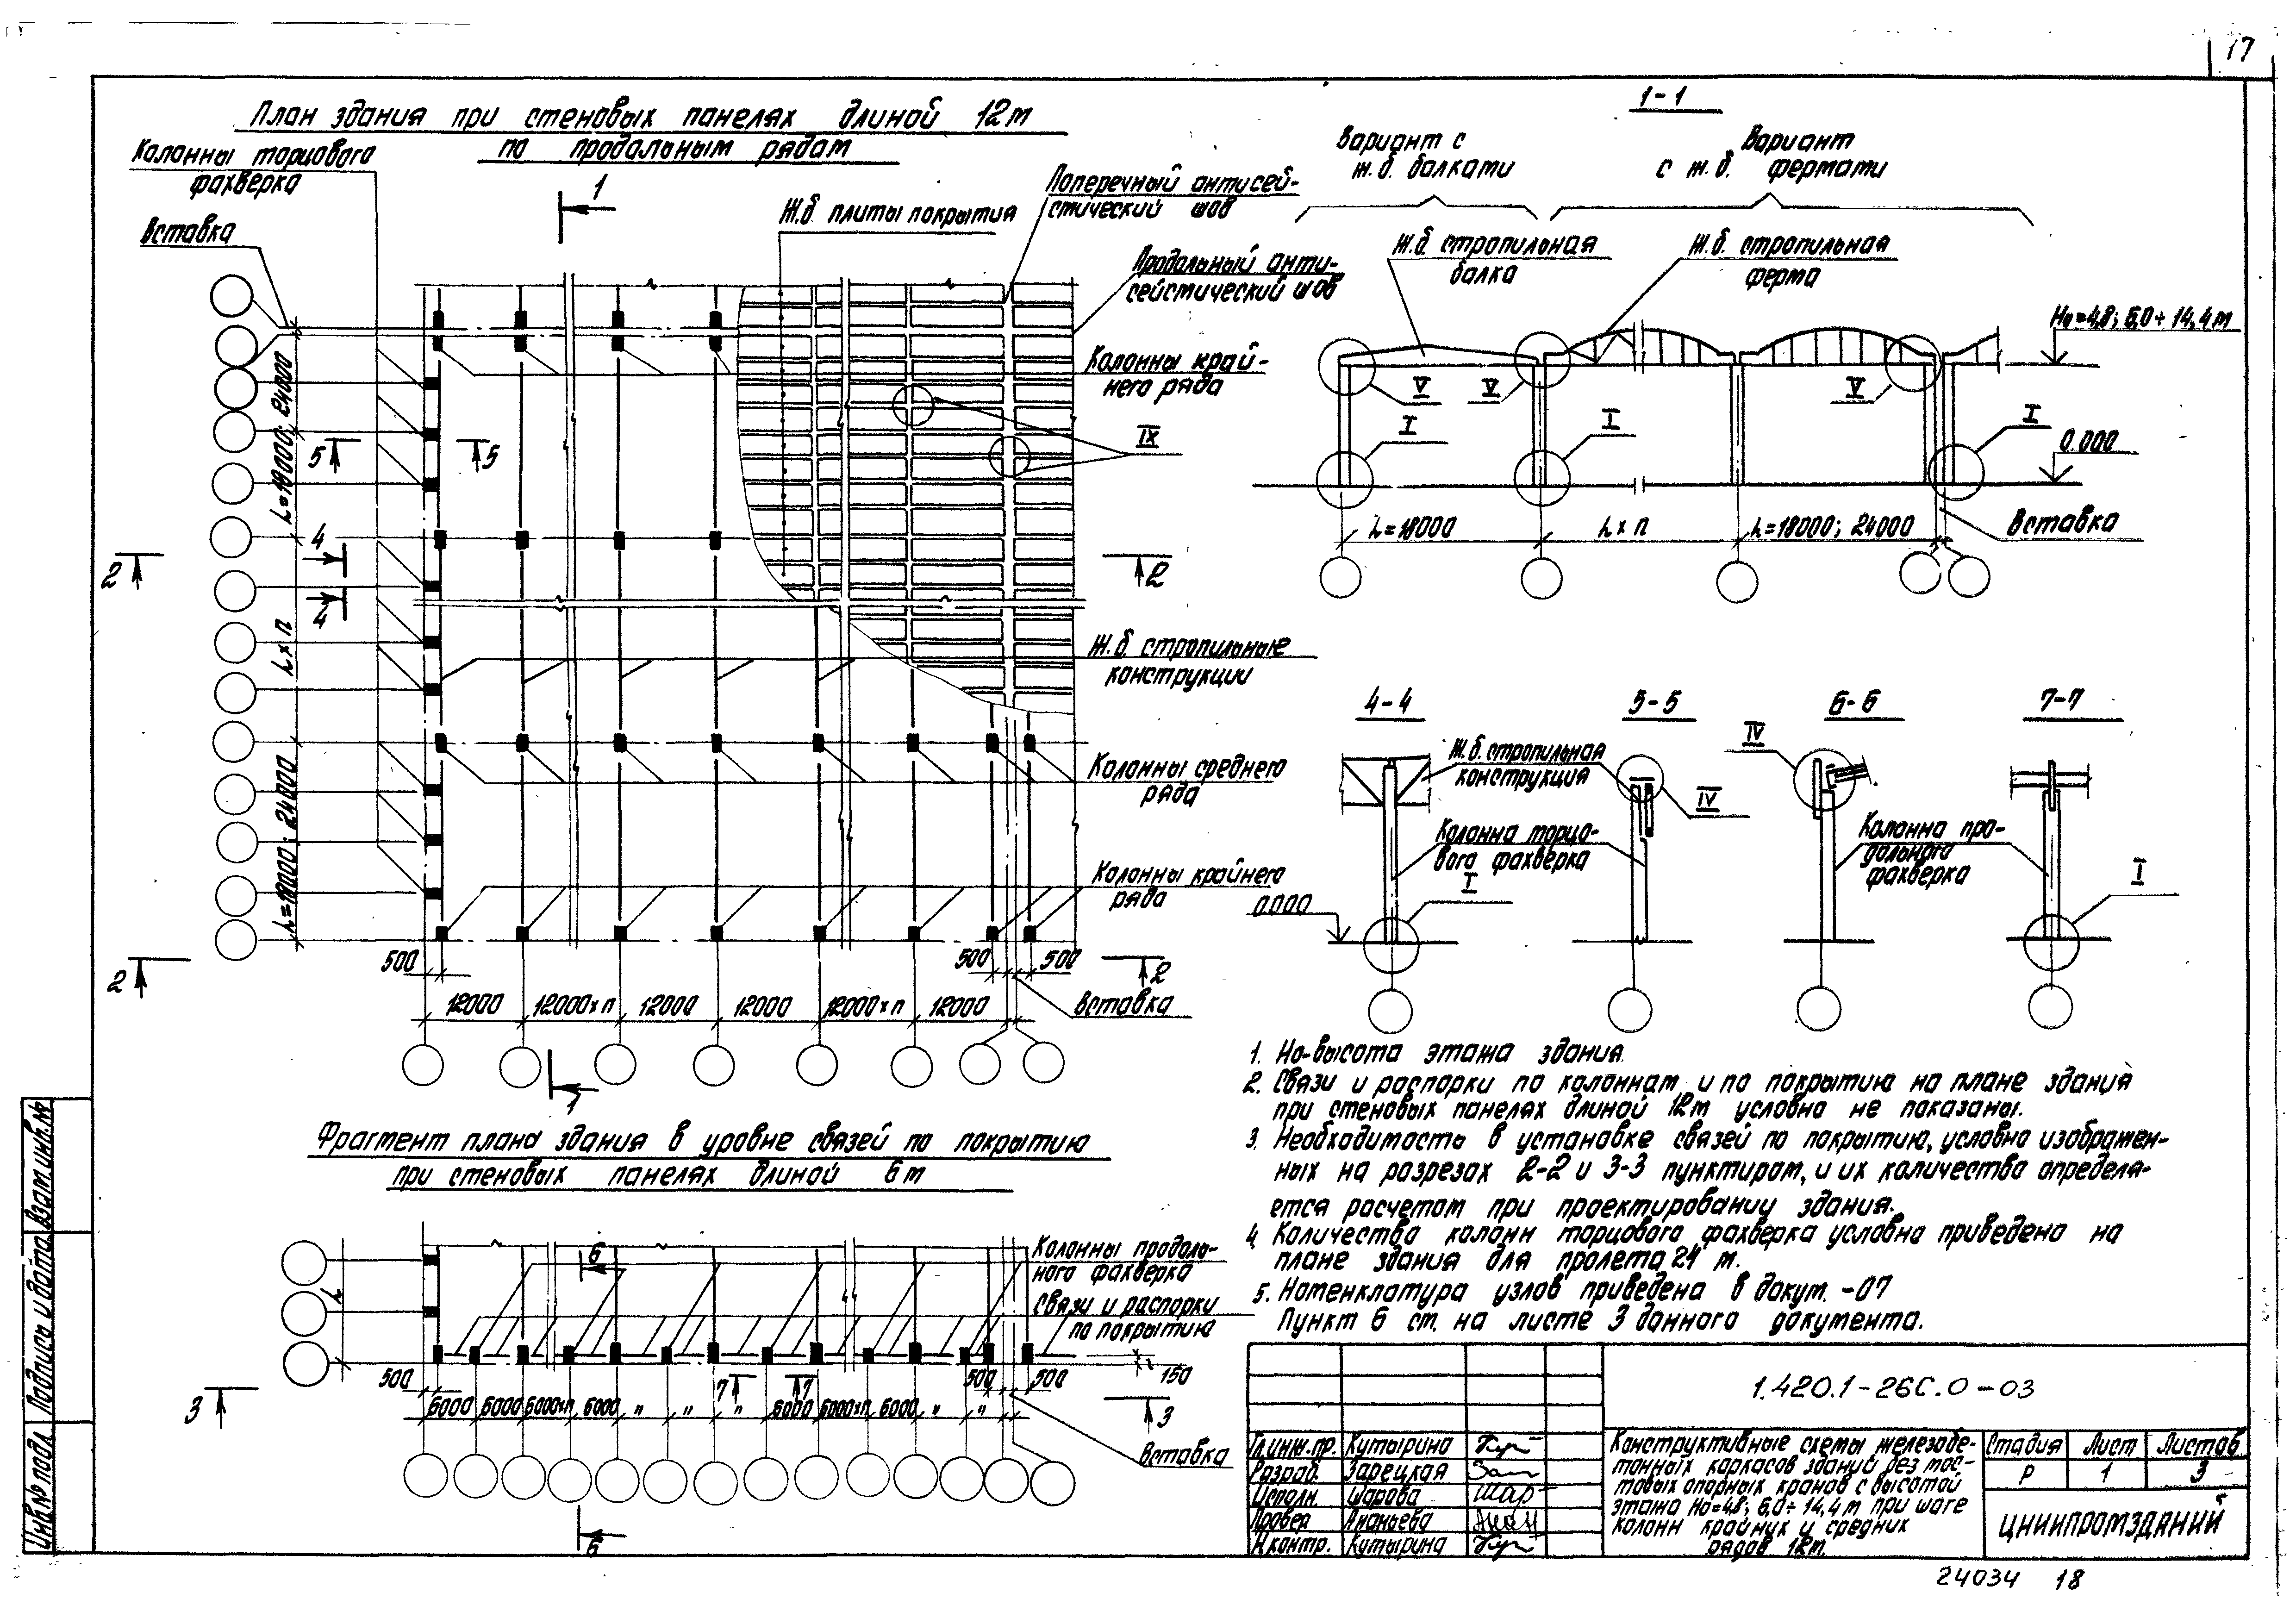 17
План здания при стеновых панелях длиной 12м
по продольным рядам
Колонны торцового
фахверка
Вставка
1
Ж.б. плиты покрытия
Поперечный антисей-
смический шов
Продольный анти-
сейсмический шов
Колонны край-
него ряда
IX
L=18000; 24000
5
5
4
4
2
2
L×п
Ж.б. стропильные
конструкции
L=18000; 24000
Колонны среднего
ряда
Колонны крайнего
ряда
500
500
500
2
2
12000
12000×п
12000
12000
12000×п
12000
Вставка
1
1-1
Вариант с
ж.б. балками
Вариант
с ж.б. фермами
Ж.б. стропильная
балка
Ж.б. стропильная
ферма
Н₀=4,8; 6,0÷14,4м
V
V
V
I
I
I
0.000
L=18000
L×п
L=18000; 24000
Вставка
4-4
5-5
6-6
7-7
Ж.б. стропильная
конструкция
IV
IV
Колонна торцо-
вого фахверка
Колонна про-
дольного
фахверка
I
I
0.000
1. Но-высота этажа здания.
2. Связи и распорки по колоннам и по покрытию на плане здания
при стеновых панелях длиной 12м условно не показаны.
3. Необходимость в установке связей по покрытию, условно изображен-
ных на разрезах 2-2 и 3-3 пунктиром, и их количество определя-
ется расчетом при проектировании здания.
4. Количество колонн торцового фахверка условно приведено на
плане здания для пролета 24 м.
5. Номенклатура узлов приведена в докум. -07
Пункт 6 см. на листе 3 данного документа.
Фрагмент плана здания в уровне связей по покрытию
при стеновых панелях длиной 6м
6
Колонны продоль-
ного фахверка
Связи и распорки
по покрытию
L
500
7
7
500
500
150
3
3
6000
6000
6000×п
6000
"
"
"
6000
6000×п
6000
"
"
Вставка
6
Взам.инв.№
Подпись и дата
Инв.№ подл.
1.420.1-26С.0-03
Гл.инж.пр. Кутырина
Разраб. Зарецкая
Исполн. Шарова
Провер Ананьева
Н.контр. Кутырина
Конструктивные схемы железобе-
тонных каркасов зданий без мос-
товых опорных кранов с высотой
этажа Но=4,8; 6,0÷14,4м при шаге
колонн крайних и средних
рядов 12м.
Стадия Лист Листов
Р 1 3
ЦНИИПРОМЗДАНИЙ
24034 18